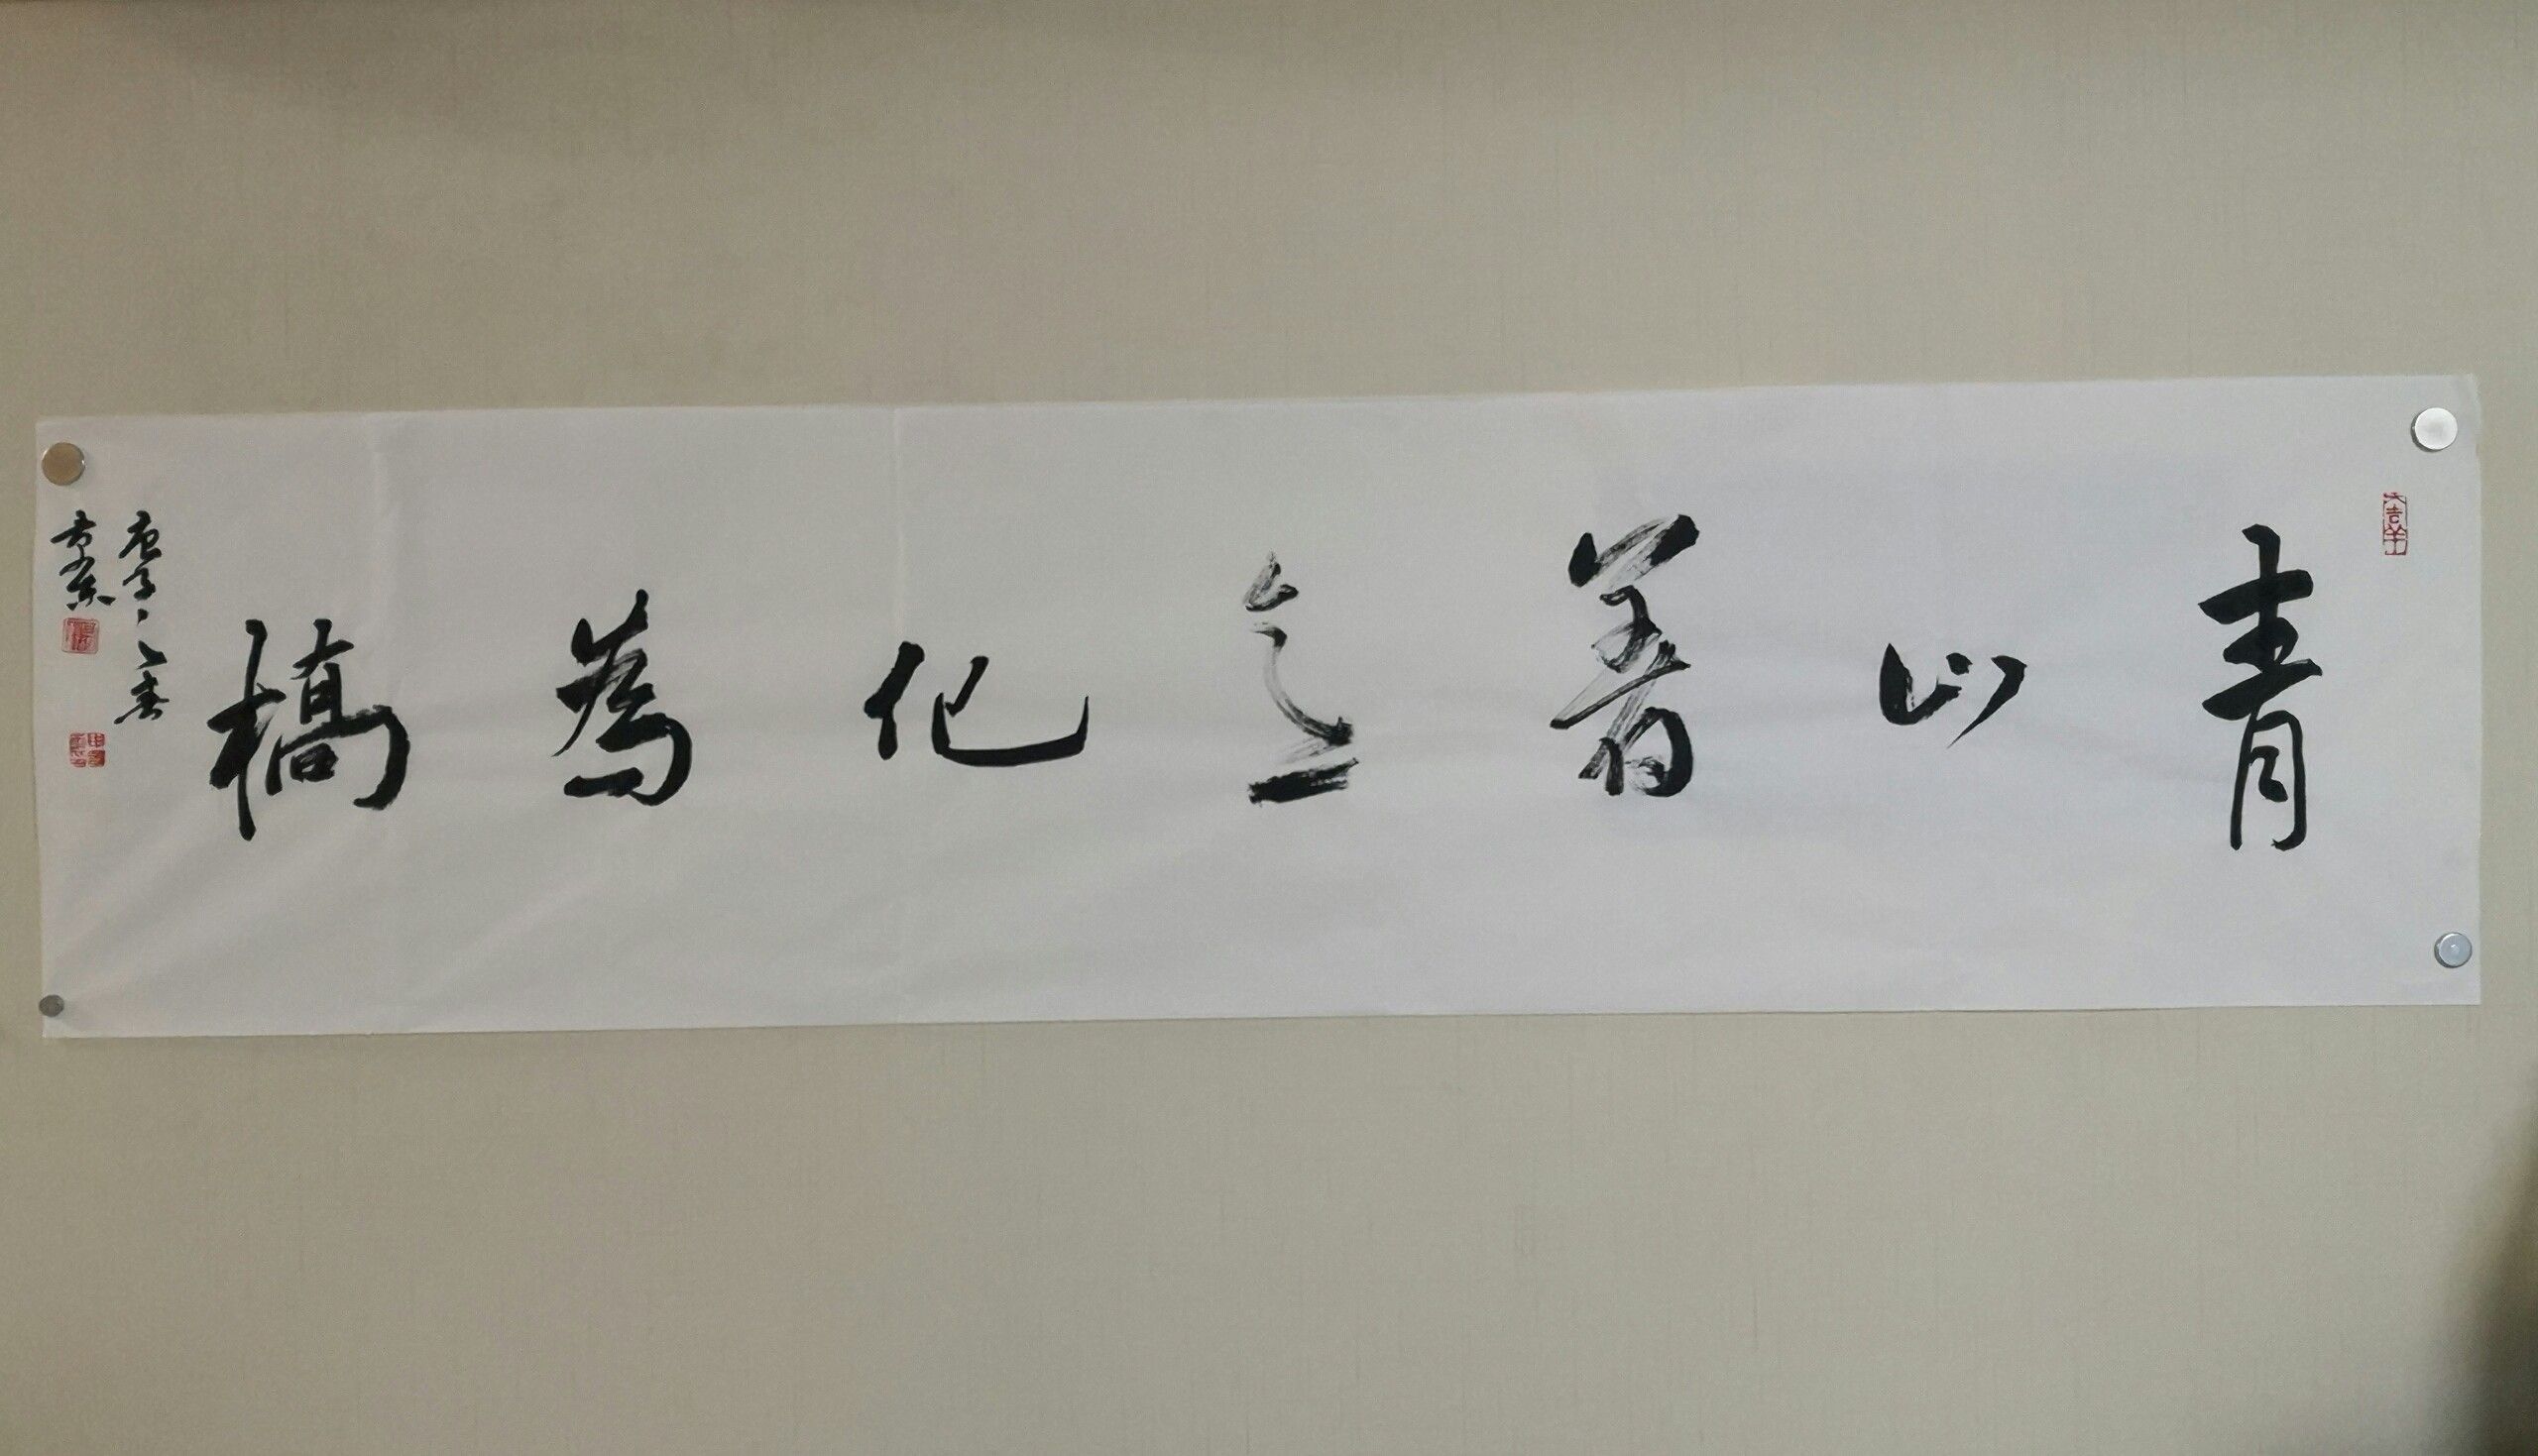 青山着意化為橋
庚子之春